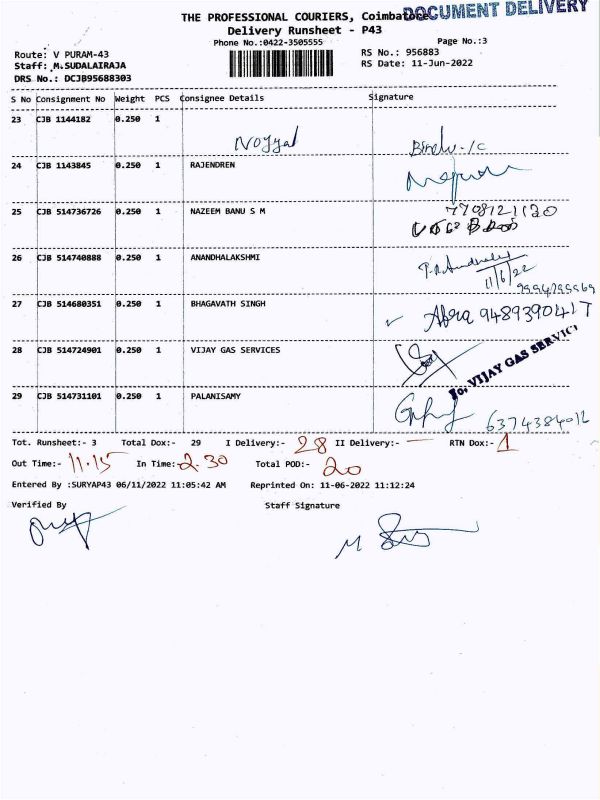 DOCUMENT DELIVERY
THE PROFESSIONAL COURIERS, Coimbatore
Delivery Runsheet - P43
Phone No.:0422-3505555 Page No.:3
Route: V PURAM-43 RS No.: 956883
Staff: M.SUDALAIRAJA RS Date: 11-Jun-2022
DRS No.: DCJB95688303
S No Consignment No Weight PCS Consignee Details Signature
23 CJB 1144182 0.250 1
24 CJB 1143845 0.250 1 RAJENDREN
25 CJB 514736726 0.250 1 NAZEEM BANU S M 7708121120
26 CJB 514740888 0.250 1 ANANDHALAKSHMI
11/6/22
27 CJB 514680351 0.250 1 BHAGAVATH SINGH
28 CJB 514724901 0.250 1 VIJAY GAS SERVICES
For VIJAY GAS SERVICE
29 CJB 514731101 0.250 1 PALANISAMY 6374384012
Tot. Runsheet:- 3 Total Dox:- 29 I Delivery:- 28 II Delivery:- — RTN Dox:- 1
Out Time:- 11.15 In Time:- 2.30 Total POD:- 20
Entered By :SURYAP43 06/11/2022 11:05:42 AM Reprinted On: 11-06-2022 11:12:24
Verified By Staff Signature